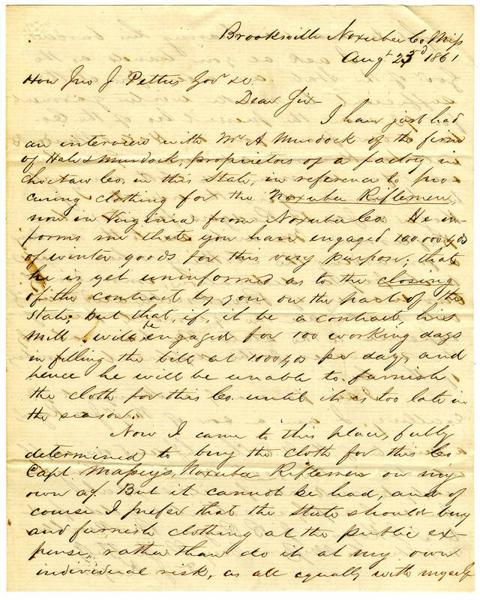 Brooksville Noxubee Co, Miss
Augt 23d 1861
Hon Jno J Pettus Gov &c
Dear Sir
I have just had
an interview with Mr A Murdock of the firm
of Hale & Murdock, proprietors of a factory in
Choctaw Co, in this State, in reference to pro-
curing clothing for the Noxubee Riflemen
now in Virginia from Noxubee Co. He in-
forms me that you have engaged 100.000 yds
of winter goods for this very purpose; that
he is yet uninformed as to the closing
of the contract by you on the part of the
State; but that, if, it be a contract, his
Mill will be engaged for 100 working days
in filling the bill at 1000 yds per day, and
hence he will be unable to furnish
the cloth for this Co. until it is too late in
the season.
Now I came to this place, fully
determined to buy the cloth for this Co
Capt Noxubee Riflemen on my
own a/c. But it cannot be had, and of
course I prefer that the State should buy
and furnish clothing at the public ex-
pense, rather than do it at my own
individual risk, as all equally with myself